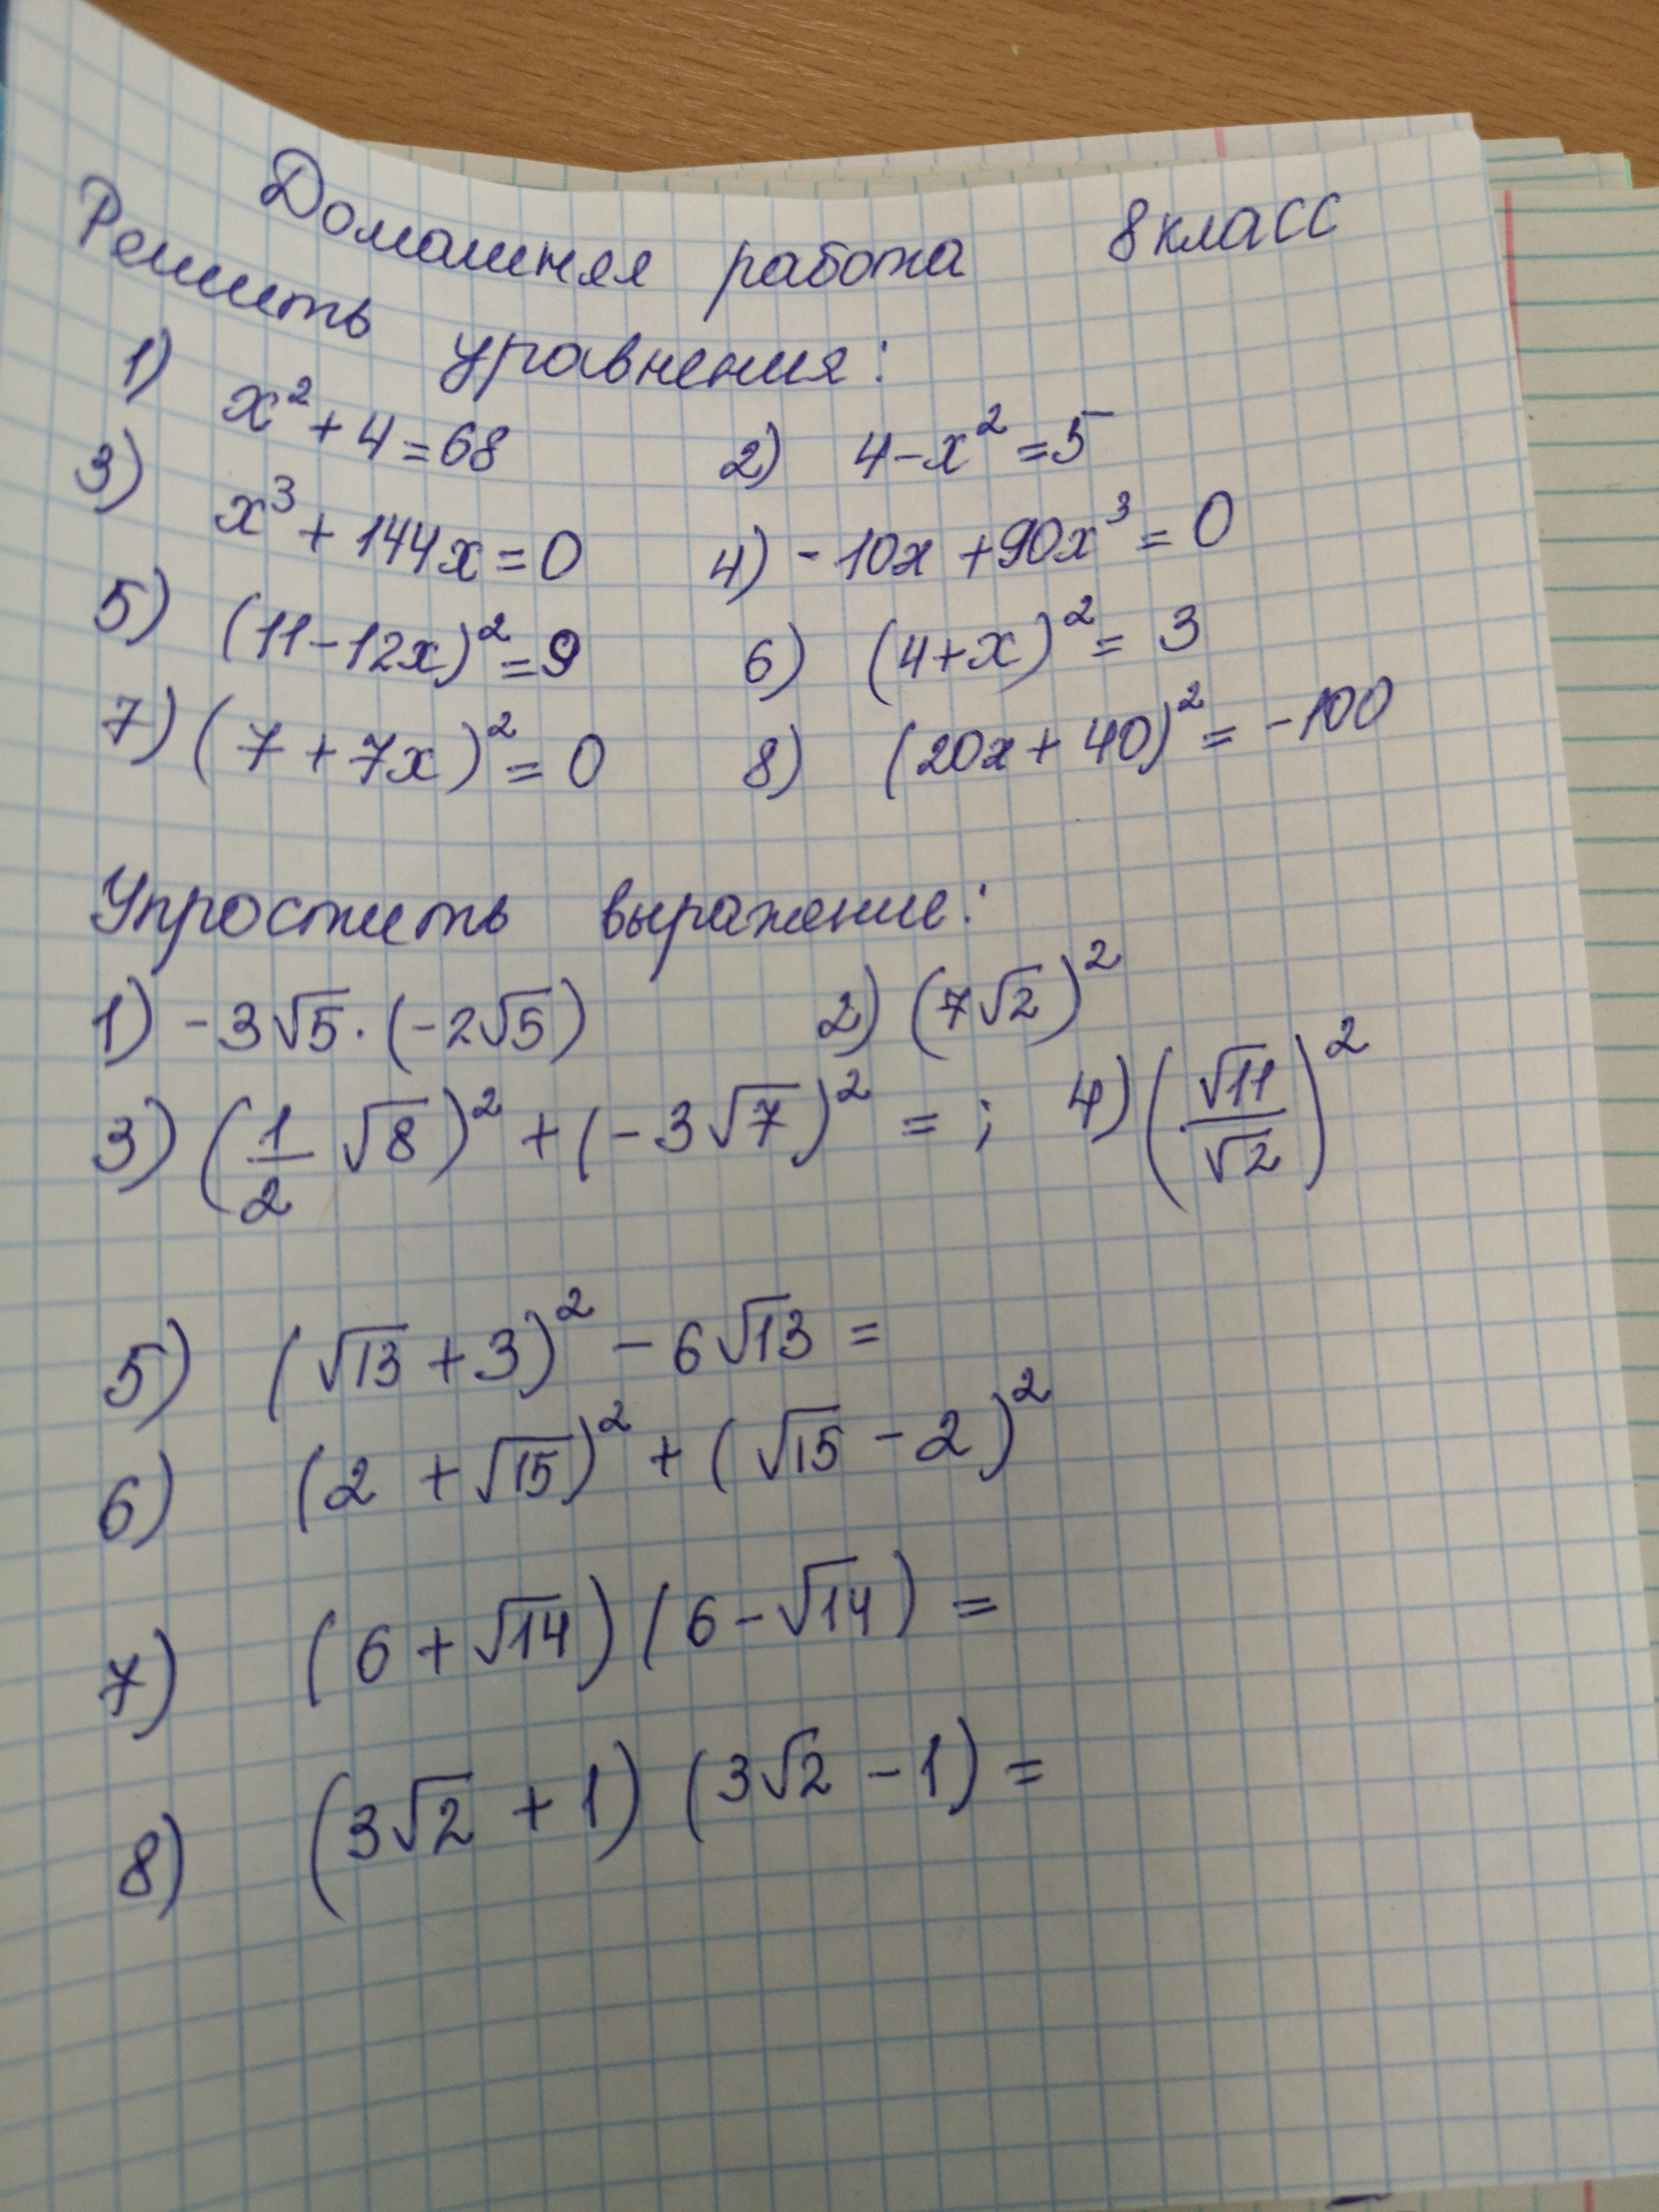 Домашняя работа 8 класс
Решить уравнения:
1) x² + 4 = 68 2) 4 - x² = 5
3) x³ + 144x = 0 4) - 10x + 90x³ = 0
5) (11 - 12x)² = 9 6) (4 + x)² = 3
7) (7 + 7x)² = 0 8) (20x + 40)² = -100
Упростить выражение:
1) -3√5 · (-2√5) 2) (7√2)²
3) (1/2 √8)² + (-3√7)² = ; 4) (√11/√2)²
5) (√13 + 3)² - 6√13 =
6) (2 + √15)² + (√15 - 2)²
7) (6 + √14)(6 - √14) =
8) (3√2 + 1)(3√2 - 1) =